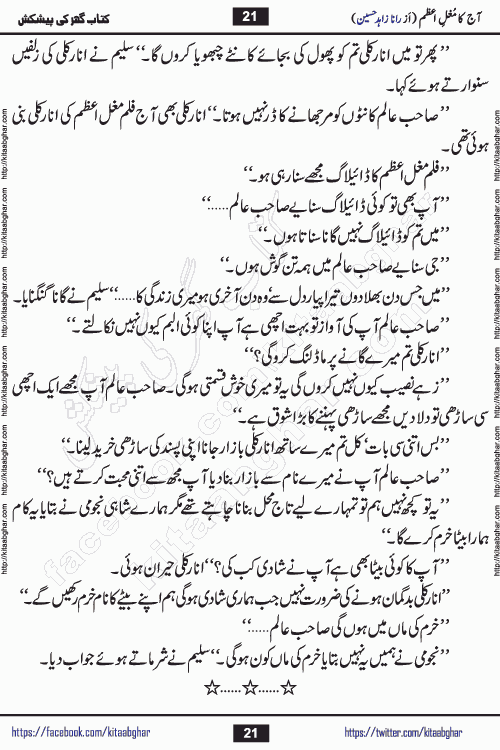 آج کا مُغلِ اعظم (از رانا زاہد حسین) 21 کتاب گھر کی پیشکش
’’پھر تو میں انارکلی تم کو پھول کی بجائے کانٹے چبھویا کروں گا۔‘‘ سلیم نے انارکلی کی زلفیں
سنوارتے ہوئے کہا۔
’’صاحب عالم کانٹوں کو مرجھانے کا ڈر نہیں ہوتا۔‘‘ انارکلی بھی آج فلم مغل اعظم کی انارکلی بنی
ہوئی تھی۔
’’فلم مغل اعظم کا ڈائیلاگ مجھے سنا رہی ہو۔‘‘
’’آپ بھی تو کوئی ڈائیلاگ سنایے صاحب عالم......‘‘
’’میں تم کو ڈائیلاگ نہیں گانا سناتا ہوں۔‘‘
’’جی سنایے صاحب عالم میں ہمہ تن گوش ہوں۔‘‘
’’میں جس دن بھلا دوں تیرا پیار دل سے‘ وہ دن آخری ہو میری زندگی کا......‘‘ سلیم نے گانا گنگنایا۔
’’صاحب عالم آپ کی آواز تو بہت اچھی ہے آپ اپنا کوئی البم کیوں نہیں نکالتے۔‘‘
’’انارکلی تم میرے گانے پر ماڈلنگ کرو گی؟‘‘
’’زہے نصیب کیوں نہیں کروں گی یہ تو میری خوش قسمتی ہو گی۔ صاحب عالم آپ مجھے ایک اچھی
سی ساڑھی تو دلا دیں مجھے ساڑھی پہننے کا بڑا شوق ہے۔‘‘
’’بس اتنی سی بات‘ کل تم میرے ساتھ انارکلی بازار جانا اپنی پسند کی ساڑھی خرید لینا۔‘‘
’’صاحب عالم آپ نے میرے نام سے بازار بنا دیا آپ مجھ سے اتنی محبت کرتے ہیں؟‘‘
’’یہ تو کچھ نہیں ہم تو تمہارے لیے تاج محل بنانا چاہتے تھے مگر ہمارے شاہی نجومی نے بتایا یہ کام
ہمارا بیٹا خرم کرے گا۔‘‘
’’آپ کا کوئی بیٹا بھی ہے آپ نے شادی کب کی؟‘‘ انارکلی حیران ہوئی۔
’’انارکلی بدگمان ہونے کی ضرورت نہیں جب ہماری شادی ہو گی ہم اپنے بیٹے کا نام خرم رکھیں گے۔‘‘
’’خرم کی ماں میں ہوں گی صاحب عالم......‘‘
’’نجومی نے ہمیں یہ نہیں بتایا خرم کی ماں کون ہو گی۔‘‘ سلیم نے شرماتے ہوئے جواب دیا۔
☆......☆......☆
https://facebook.com/kitaabghar 21 https://twitter.com/kitaabghar
http://kitaabghar.com http://kitaabghar.com http://kitaabghar.com http://kitaabghar.com http://kitaabghar.com http://kitaabghar.com
http://kitaabghar.com http://kitaabghar.com http://kitaabghar.com http://kitaabghar.com http://kitaabghar.com http://kitaabghar.com
کتاب گھر کی پیشکش
kitaabghar.com
facebook.com/kitaabghar